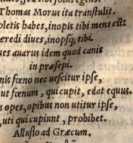 Thomas Morus ita transtulit.
pletis habes, inopis tibi mens est
eredi diues, inopsq; tibi.
ues auarus idem quod canis
in præsepi.
nis fœno nec uescitur ipse,
ut fœnum, qui cupit, edat equus.
s opes, opibus non utitur ipse,
uti qui cupiunt, prohibet.
Allusio ad Græcum,